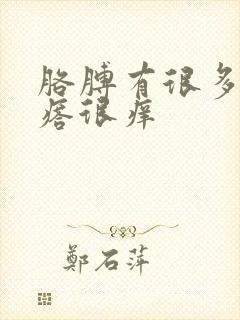 胳膊有很多
痞很痒
鄭石萍